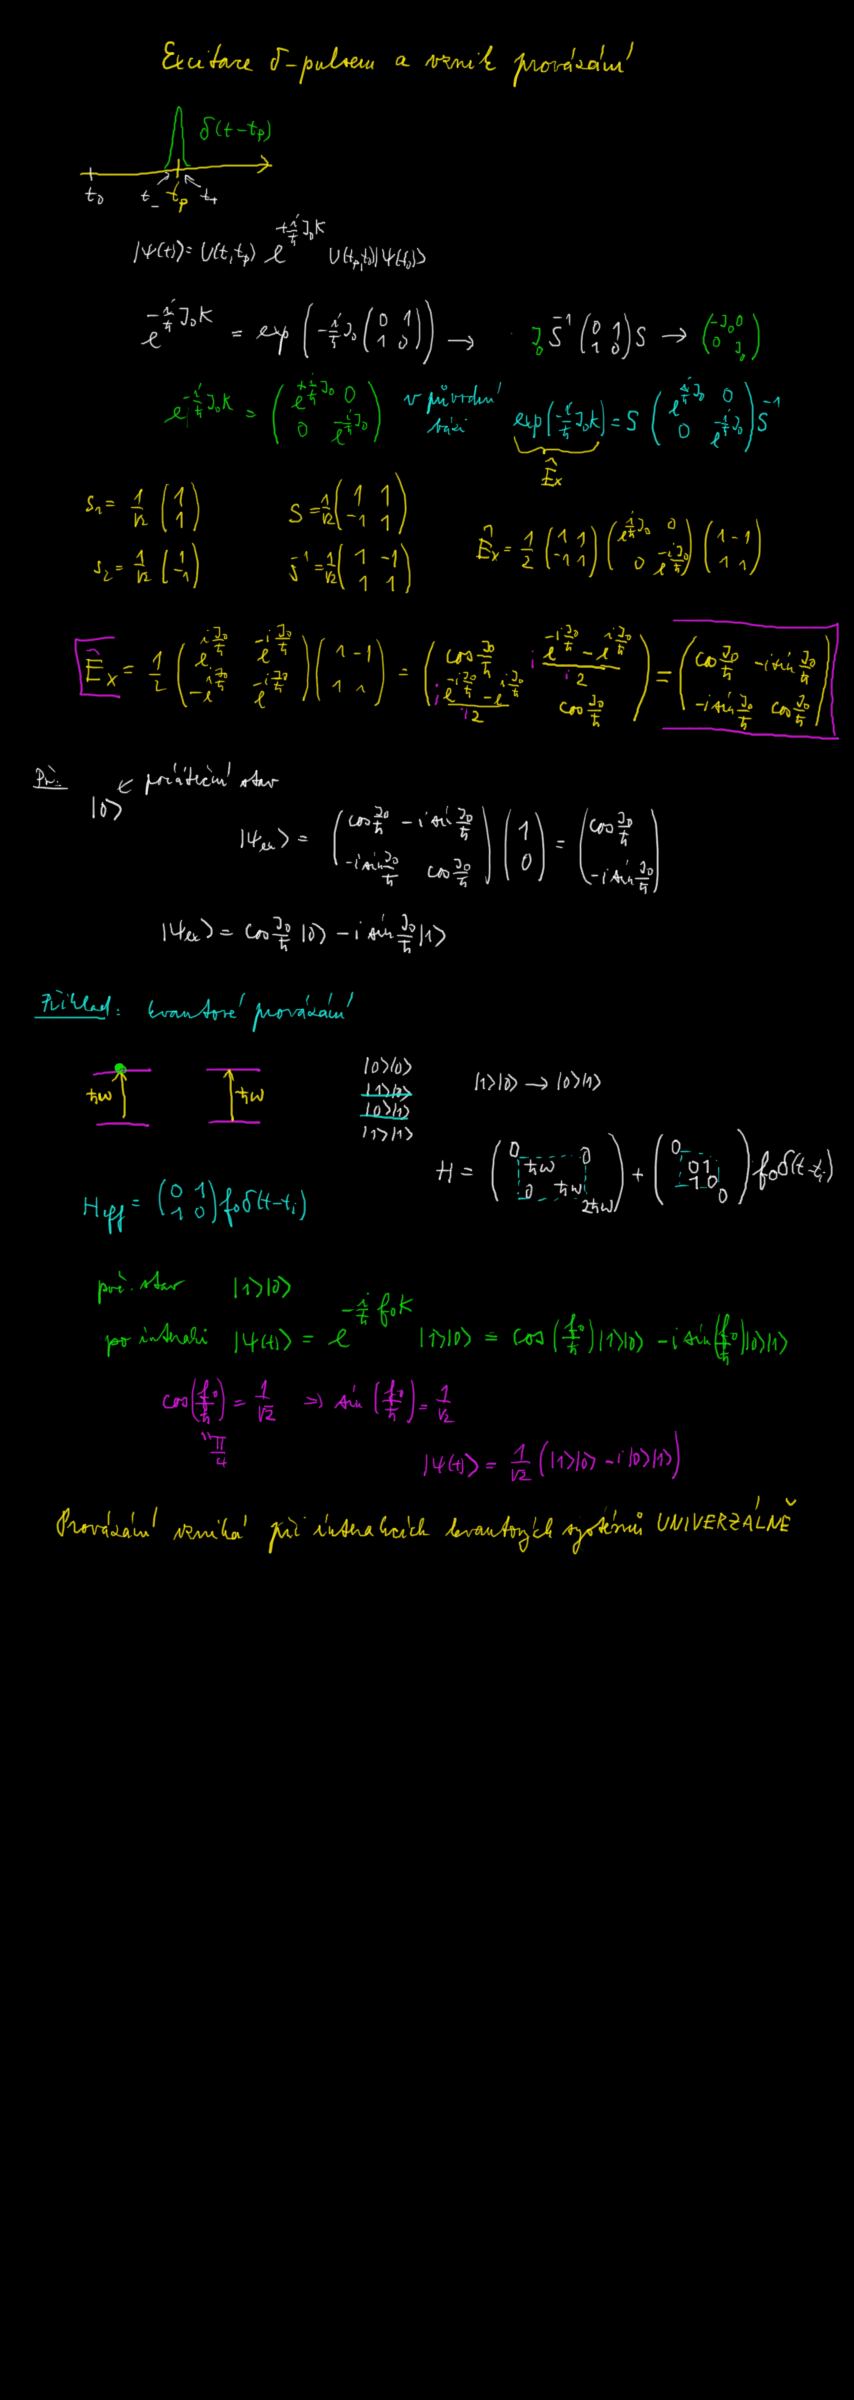 Excitace δ-pulsem a vznik provázání
δ(t-t_p)
t_0 t_- t_p t_+
|Ψ(t)> = U(t,t_p) e^{+i/ħ J_0 K} U(t_p,t_0)|Ψ(t_0)>
e^{-i/ħ J_0 K} = exp(-i/ħ J_0 (0 1; 1 0)) → J_0 S^{-1} (0 1; 1 0) S → (-J_0 0; 0 J_0)
e^{-i/ħ J_0 K} = (e^{+i/ħ J_0} 0; 0 e^{-i/ħ J_0}) v původní bázi exp(-i/ħ J_0 K) = S (e^{i/ħ J_0} 0; 0 e^{-i/ħ J_0}) S^{-1}
Ê_x
s_1 = 1/√2 (1; 1) S = 1/√2 (1 1; -1 1)
s_2 = 1/√2 (1; -1) S^{-1} = 1/√2 (1 -1; 1 1) Ê_x = 1/2 (1 1; -1 1) (e^{i/ħ J_0} 0; 0 e^{-i J_0/ħ}) (1 -1; 1 1)
Ê_x = 1/2 (e^{i J_0/ħ} e^{-i J_0/ħ}; -e^{i J_0/ħ} e^{-i J_0/ħ}) (1 -1; 1 1) = (cos J_0/ħ i (e^{-i J_0/ħ} - e^{i J_0/ħ})/i2; i (e^{-i J_0/ħ} - e^{i J_0/ħ})/i2 cos J_0/ħ) = (cos J_0/ħ -i sin J_0/ħ; -i sin J_0/ħ cos J_0/ħ)
Př.: |0> ← počáteční stav
|Ψ_ex> = (cos J_0/ħ -i sin J_0/ħ; -i sin J_0/ħ cos J_0/ħ) (1; 0) = (cos J_0/ħ; -i sin J_0/ħ)
|Ψ_ex> = cos J_0/ħ |0> - i sin J_0/ħ |1>
Příklad: kvantové provázání
ħω ħω
|0>|0>
|1>|0>
|0>|1>
|1>|1>
|1>|0> → |0>|1>
H = (0 0; ħω; 0 ħω; 2ħω) + (0; 0 1; 1 0; 0) f_0 δ(t-t_i)
H_eff = (0 1; 1 0) f_0 δ(t-t_i)
poč. stav |1>|0>
po interakci |Ψ(t)> = e^{-i/ħ f_0 K} |1>|0> = cos(f_0/ħ)|1>|0> - i sin(f_0/ħ)|0>|1>
cos(f_0/ħ) = 1/√2 ⇒ sin(f_0/ħ) = 1/√2
π/4
|Ψ(t)> = 1/√2 (|1>|0> - i|0>|1>)
Provázání vzniká při interakcích kvantových systémů UNIVERZÁLNĚ